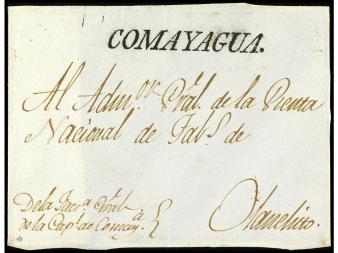 COMAYAGUA.
Al Adm.or Pral. de la Renta
Nacional de Tab.s de
De la Fac.a Pral
de la Cap.l de Comay.a
Olanchito.